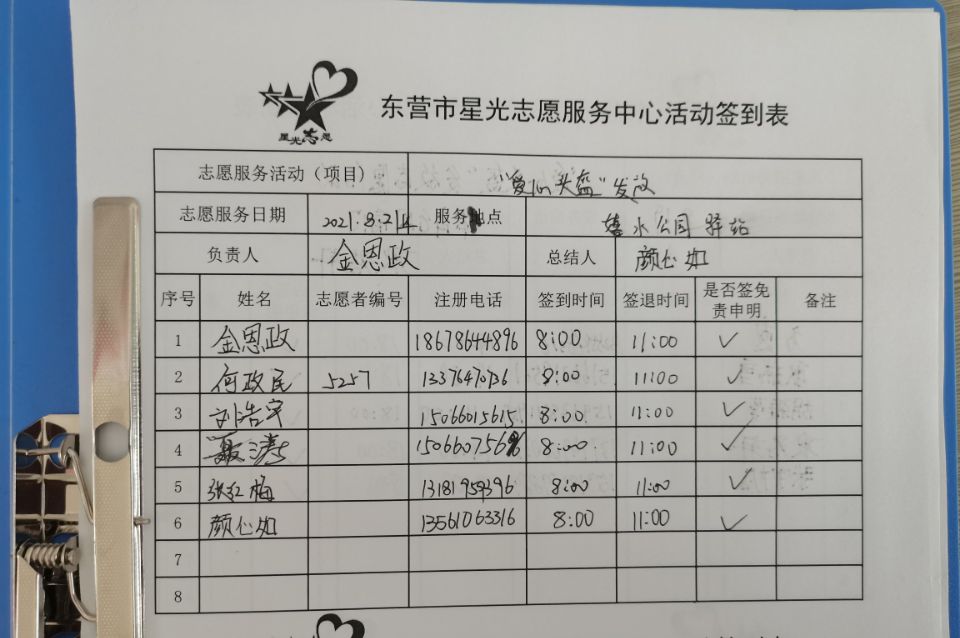 星光志愿
东营市星光志愿服务中心活动签到表
志愿服务活动（项目） "爱心头盔"发放
志愿服务日期 2021.8.21 服务地点 水公园驿站
负责人 金恩政 总结人 颜心如
序号 姓名 志愿者编号 注册电话 签到时间 签退时间 是否签免责申明 备注
1 金恩政 18678644896 8:00 11:00 ✓
2 何政民 5257 13376470736 8:00 11:00 ✓
3 刘浩宇 15066015615 8:00 11:00 ✓
4 聂涛 8:00 11:00 ✓
5 张红梅 13181959396 8:00 11:00 ✓
6 颜心如 13561063316 8:00 11:00 ✓
7
8